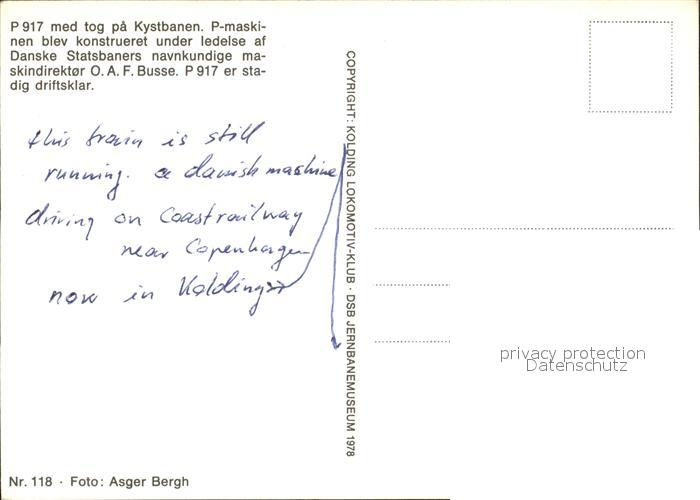 P 917 med tog på Kystbanen. P-maski-
nen blev konstrueret under ledelse af
Danske Statsbaners navnkundige ma-
skindirektør O. A. F. Busse. P 917 er sta-
dig driftsklar.
this train is still
running. a danish mashine
driving on Coastrailway
near Copenhagen
now in Kolding
COPYRIGHT: KOLDING LOKOMOTIV-KLUB · DSB JERNBANEMUSEUM 1978
privacy protection
Datenschutz
Nr. 118 · Foto: Asger Bergh